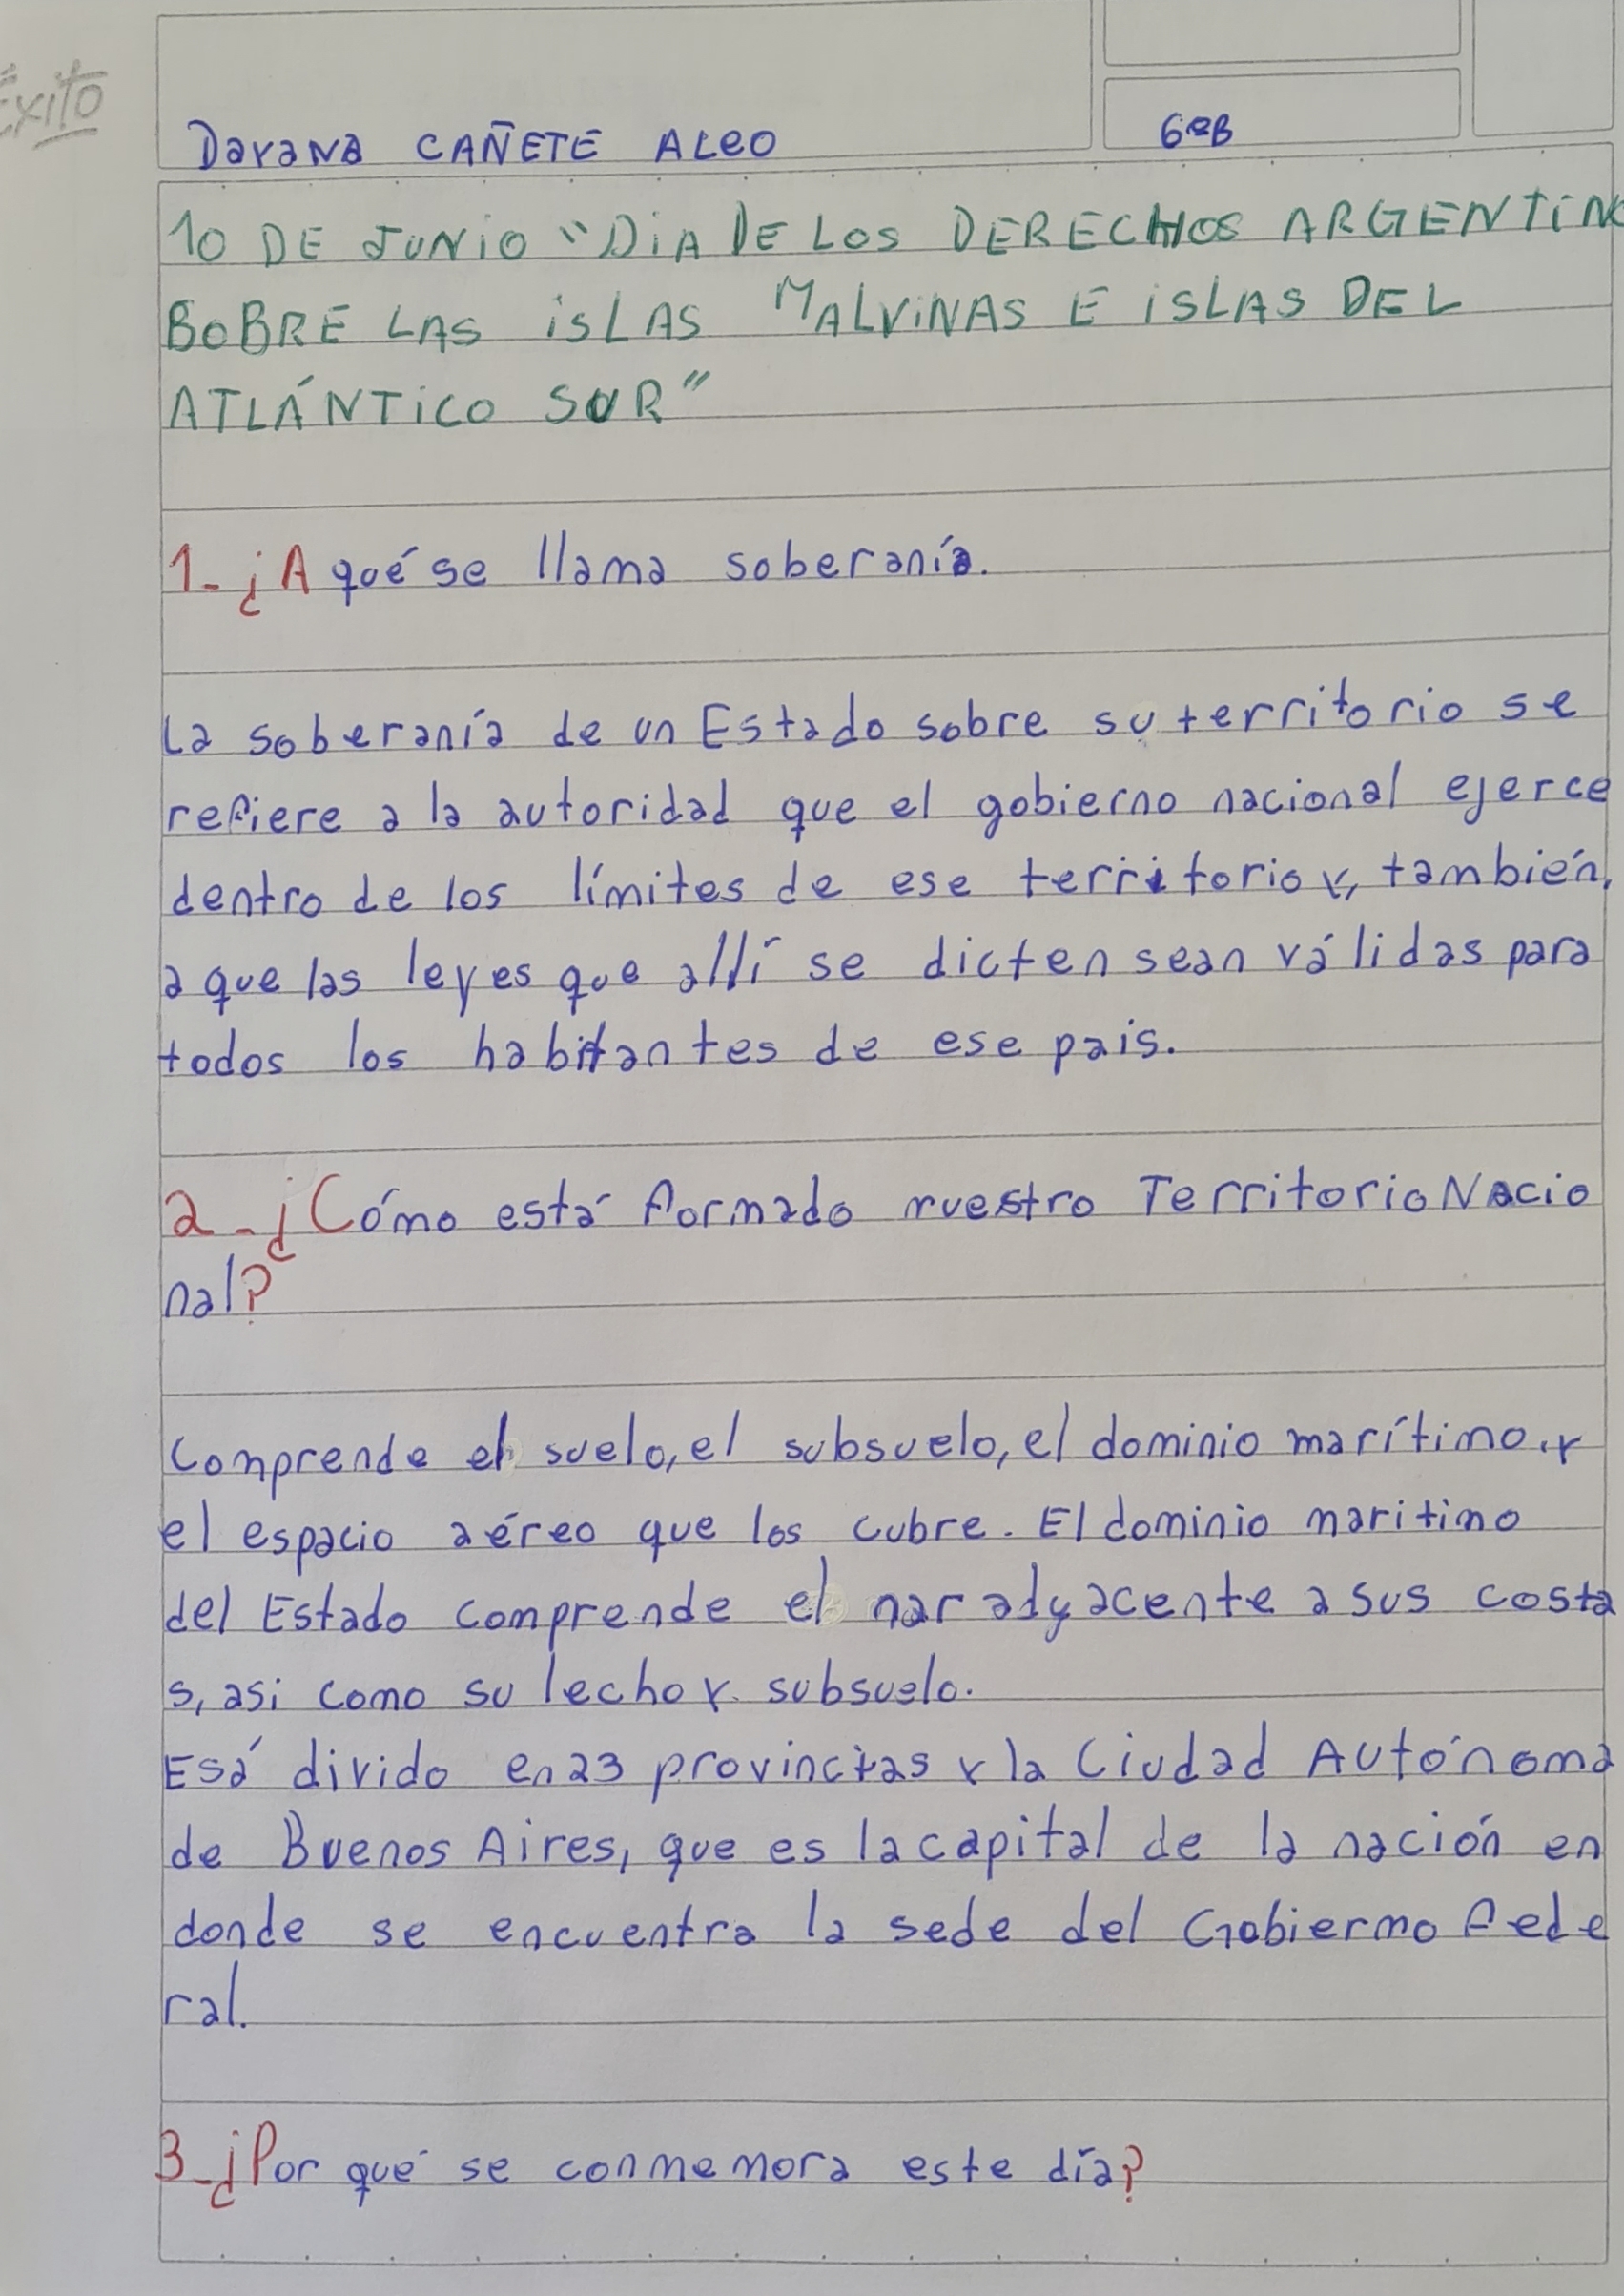 Éxito
Dayana CAÑETE ALEO 6ºB
10 DE JUNIO "DÍA DE LOS DERECHOS ARGENTIN
BOBRE LAS ISLAS MALVINAS E ISLAS DEL
ATLÁNTICO SUR"
1- ¿A qué se llama soberanía.
La soberanía de un Estado sobre su territorio se
refiere a la autoridad que el gobierno nacional ejerce
dentro de los límites de ese territorio y, también,
a que las leyes que allí se dicten sean válidas para
todos los habitantes de ese pais.
2-¿Cómo está formado nuestro Territorio Nacio
nal?
Comprende el suelo, el subsuelo, el dominio marítimo, y
el espacio aéreo que los cubre. El dominio maritimo
del Estado comprende el mar adyacente a sus costa
s, asi como su lecho y subsuelo.
Esá divido en 23 provincias y la Ciudad Autónoma
de Buenos Aires, que es la capital de la nación en
donde se encuentra la sede del Gobiermo Fede
ral.
3-¿Por qué se conmemora este día?